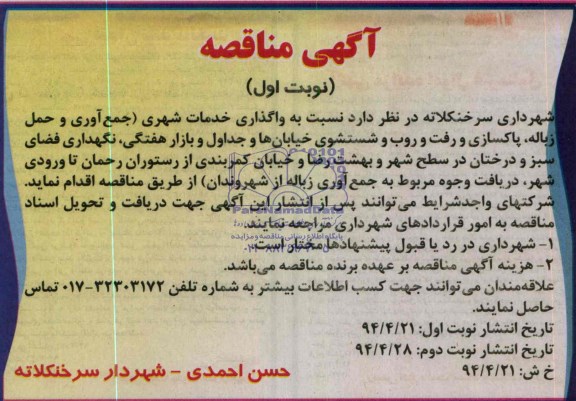 آگهی مناقصه
(نوبت اول)
شهرداری سرخنکلاته در نظر دارد نسبت به واگذاری خدمات شهری (جمع‌آوری و حمل
زباله، پاکسازی و رفت و روب و شستشوی خیابان‌ها و جداول و بازار هفتگی، نگهداری فضای
سبز و درختان در سطح شهر و بهشت رضا و خیابان کمربندی از رستوران رحمان تا ورودی
شهر، دریافت وجوه مربوط به جمع‌آوری زباله از شهروندان) از طریق مناقصه اقدام نماید.
شرکتهای واجدشرایط می‌توانند پس از انتشار این آگهی جهت دریافت و تحویل اسناد
مناقصه به امور قراردادهای شهرداری مراجعه نمایند.
۱- شهرداری در رد یا قبول پیشنهادها مختار است.
۲- هزینه آگهی مناقصه بر عهده برنده مناقصه می‌باشد.
علاقه‌مندان می‌توانند جهت کسب اطلاعات بیشتر به شماره تلفن ۳۲۳۰۳۱۷۲-۰۱۷ تماس
حاصل نمایند.
تاریخ انتشار نوبت اول: ۹۴/۴/۲۱
تاریخ انتشار نوبت دوم: ۹۴/۴/۲۸
خ ش: ۹۴/۴/۲۱
حسن احمدی - شهردار سرخنکلاته
ParsNamadData
پایگاه اطلاع رسانی مناقصه و مزایده